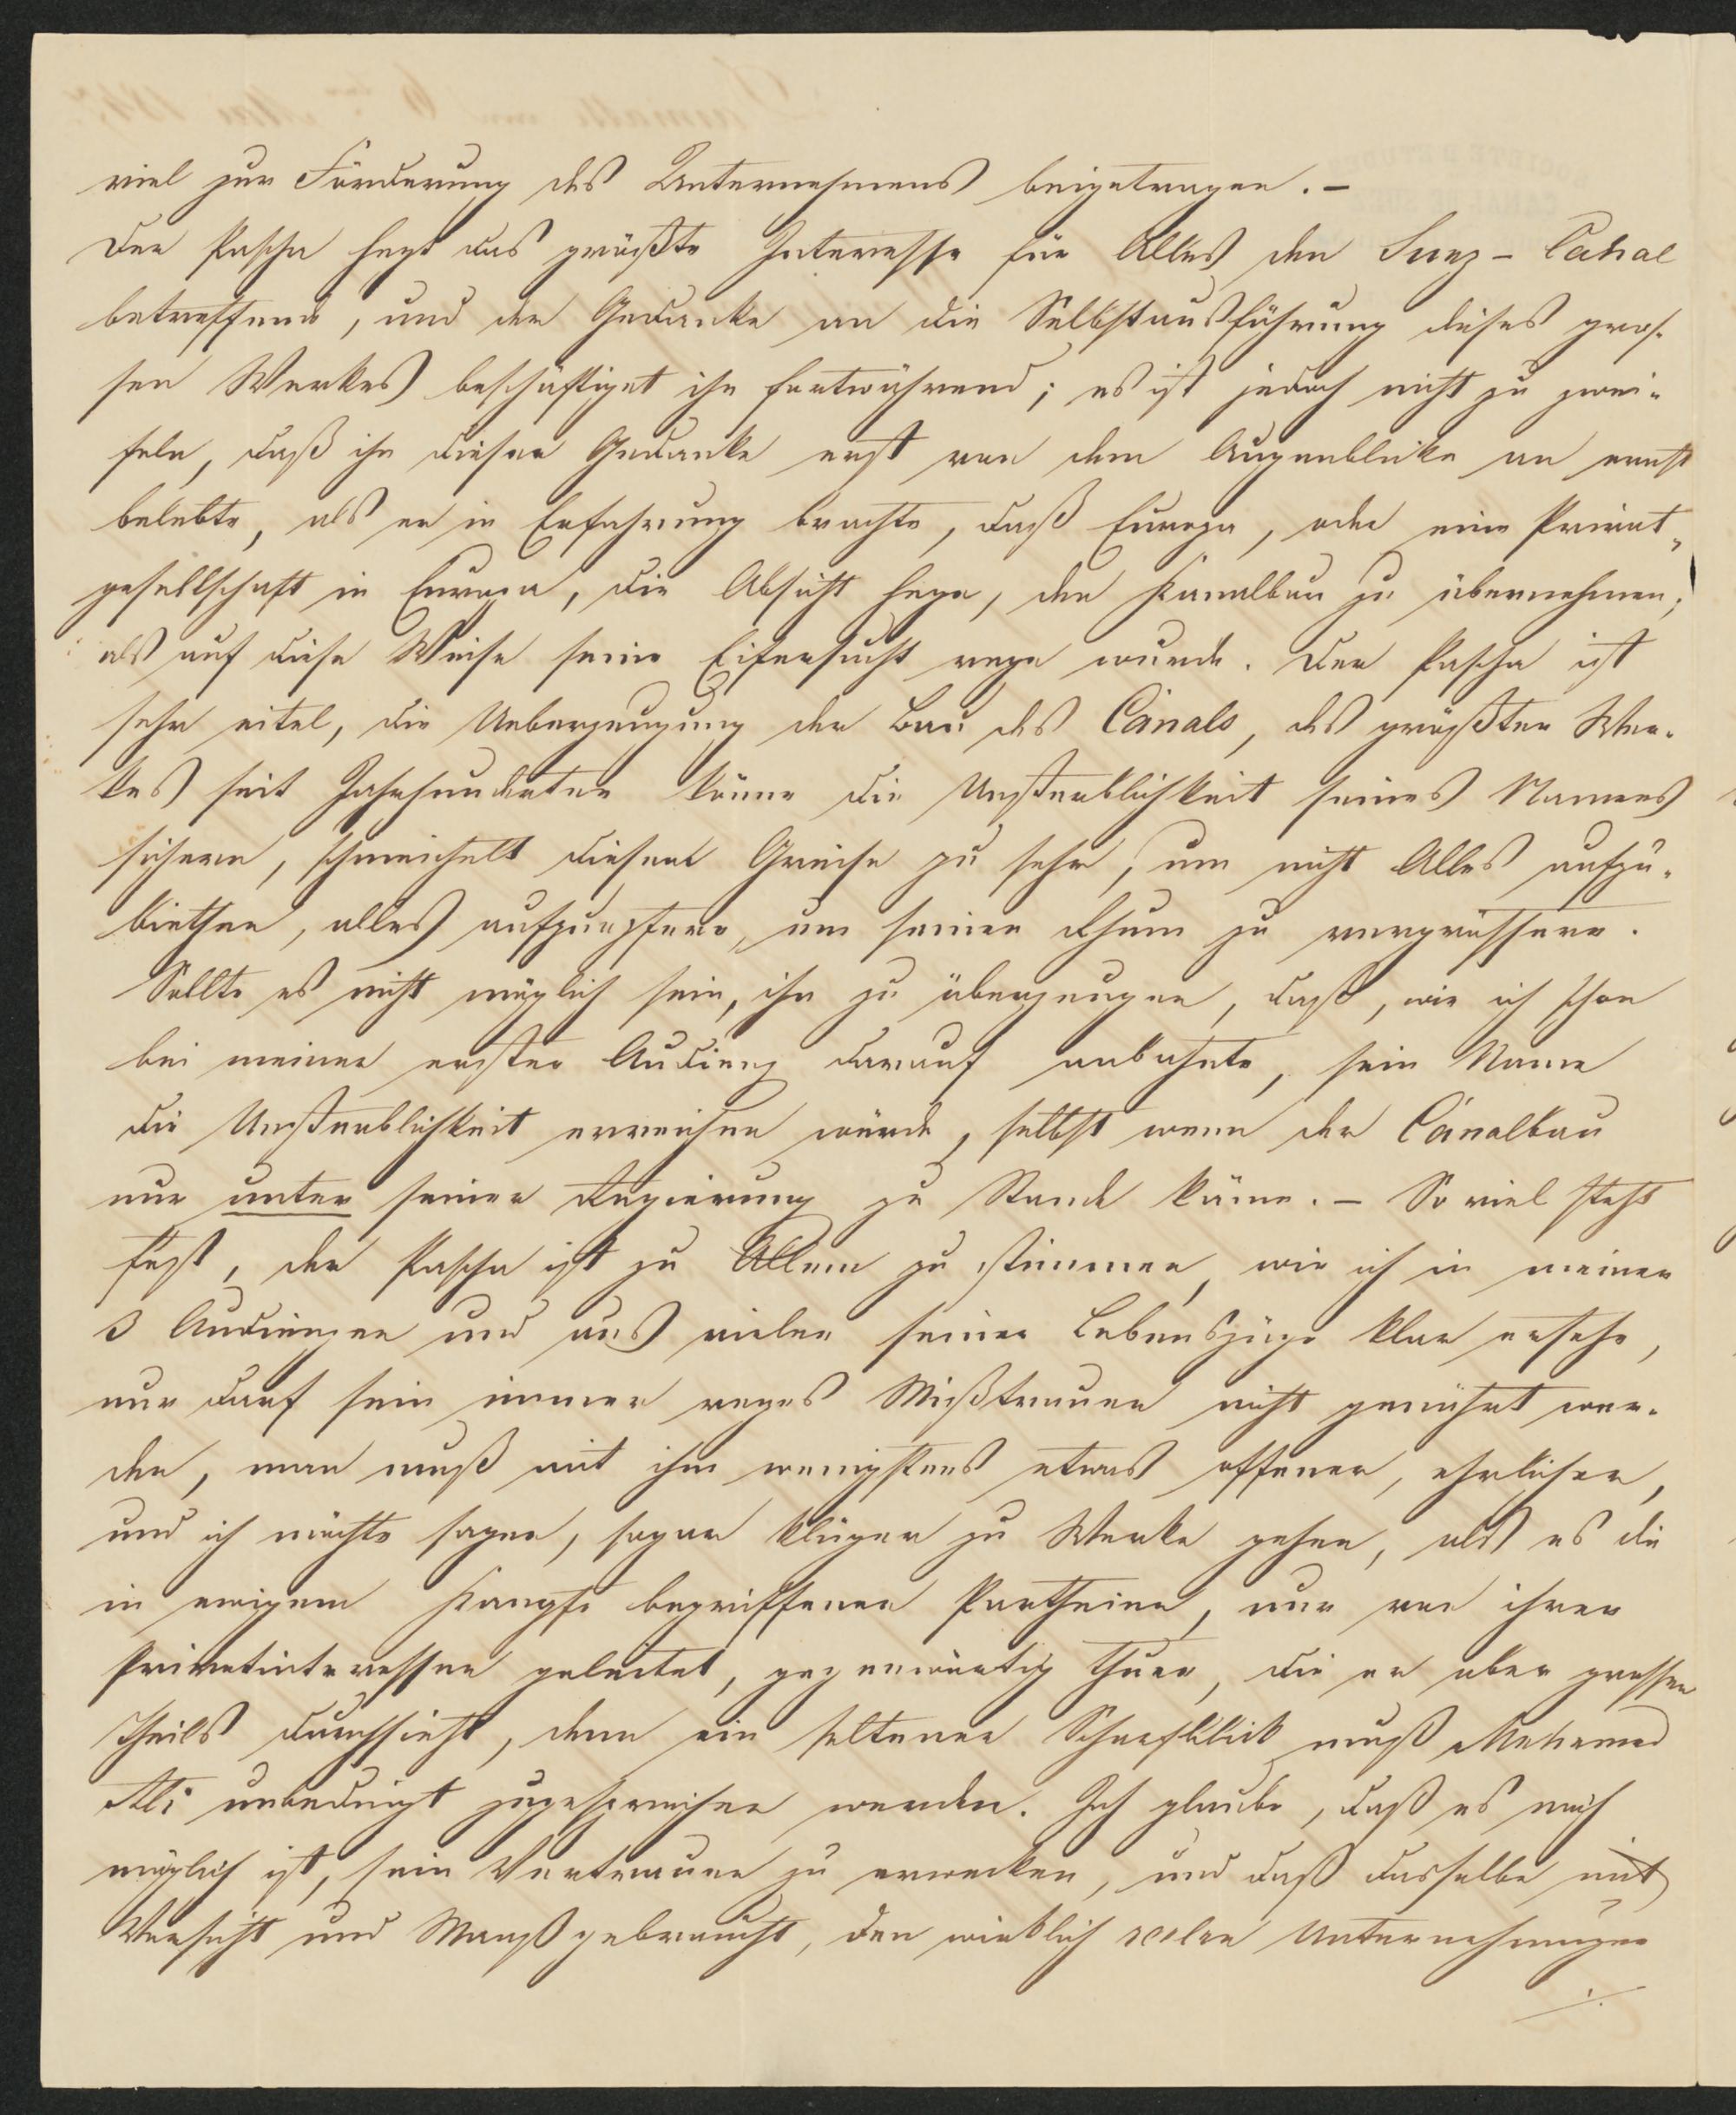 viel zur Förderung des Unternehmens beigetragen. –
Der Pascha hegt das größte Interesse für Alles den Suez-Canal
betreffend, und der Gedanke an die Selbstausführung dieses gros-
sen Werkes beschäftiget ihn fortwährend; es ist jedoch nicht zu zwei-
feln, daß ihn dieser Gedanke erst von dem Augenblicke an ernst
belebte, als er in Erfahrung brachte, daß Europa, oder eine Privat-
gesellschaft in Europa, die Absicht hege, den Kanalbau zu übernehmen;
als auf diese Weise seine Eifersucht rege wurde. Der Pascha ist
sehr eitel, die Ueberzeugung der Bau des Canals, des größten Wer-
kes seit Jahrhunderten könne die Unsterblichkeit seines Namens
sichern, schmeichelt diesem Greise zu sehr, um nicht Alles aufzu-
biethen, alles aufzuopfern, um seinen Rhum zu vergrössern.
Sollte es nicht möglich sein, ihn zu überzeugen, daß, wie ich schon
bei meiner ersten Audienz darauf anbahnte, sein Name
die Unsterblichkeit erreichen würde, selbst wenn der Canalbau
nur unter seiner Regierung zu Stande käme. – So viel steht
fest, der Pascha ist zu Allem zu stimmen, wie ich in meinen
3 Audienzen und aus vielen seiner Lebenszüge klar ersehe,
nur darf sein immer reges Mißtrauen nicht genährt wer-
den, man muß mit ihm wenigstens etwas offener, ehrlicher,
und ich möchte sagen, sogar klüger zu Werke gehen, als es die
in ewigem Kampfe begriffenen Partheien, nur von ihren
Privatinteressen geleitet, gegenwärtig thuen, die er aber grossen
Theils durchsieht, denn ein seltener Scharfblick muß Mehemed
Ali unbedingt zugesprochen werden. Ich glaube, daß es mich
möglich ist, sein Vertrauen zu erwecken, und daß dasselbe mit
Vorsicht und Maaß gebraucht, den wirklich reelen Unternehmungen
./.